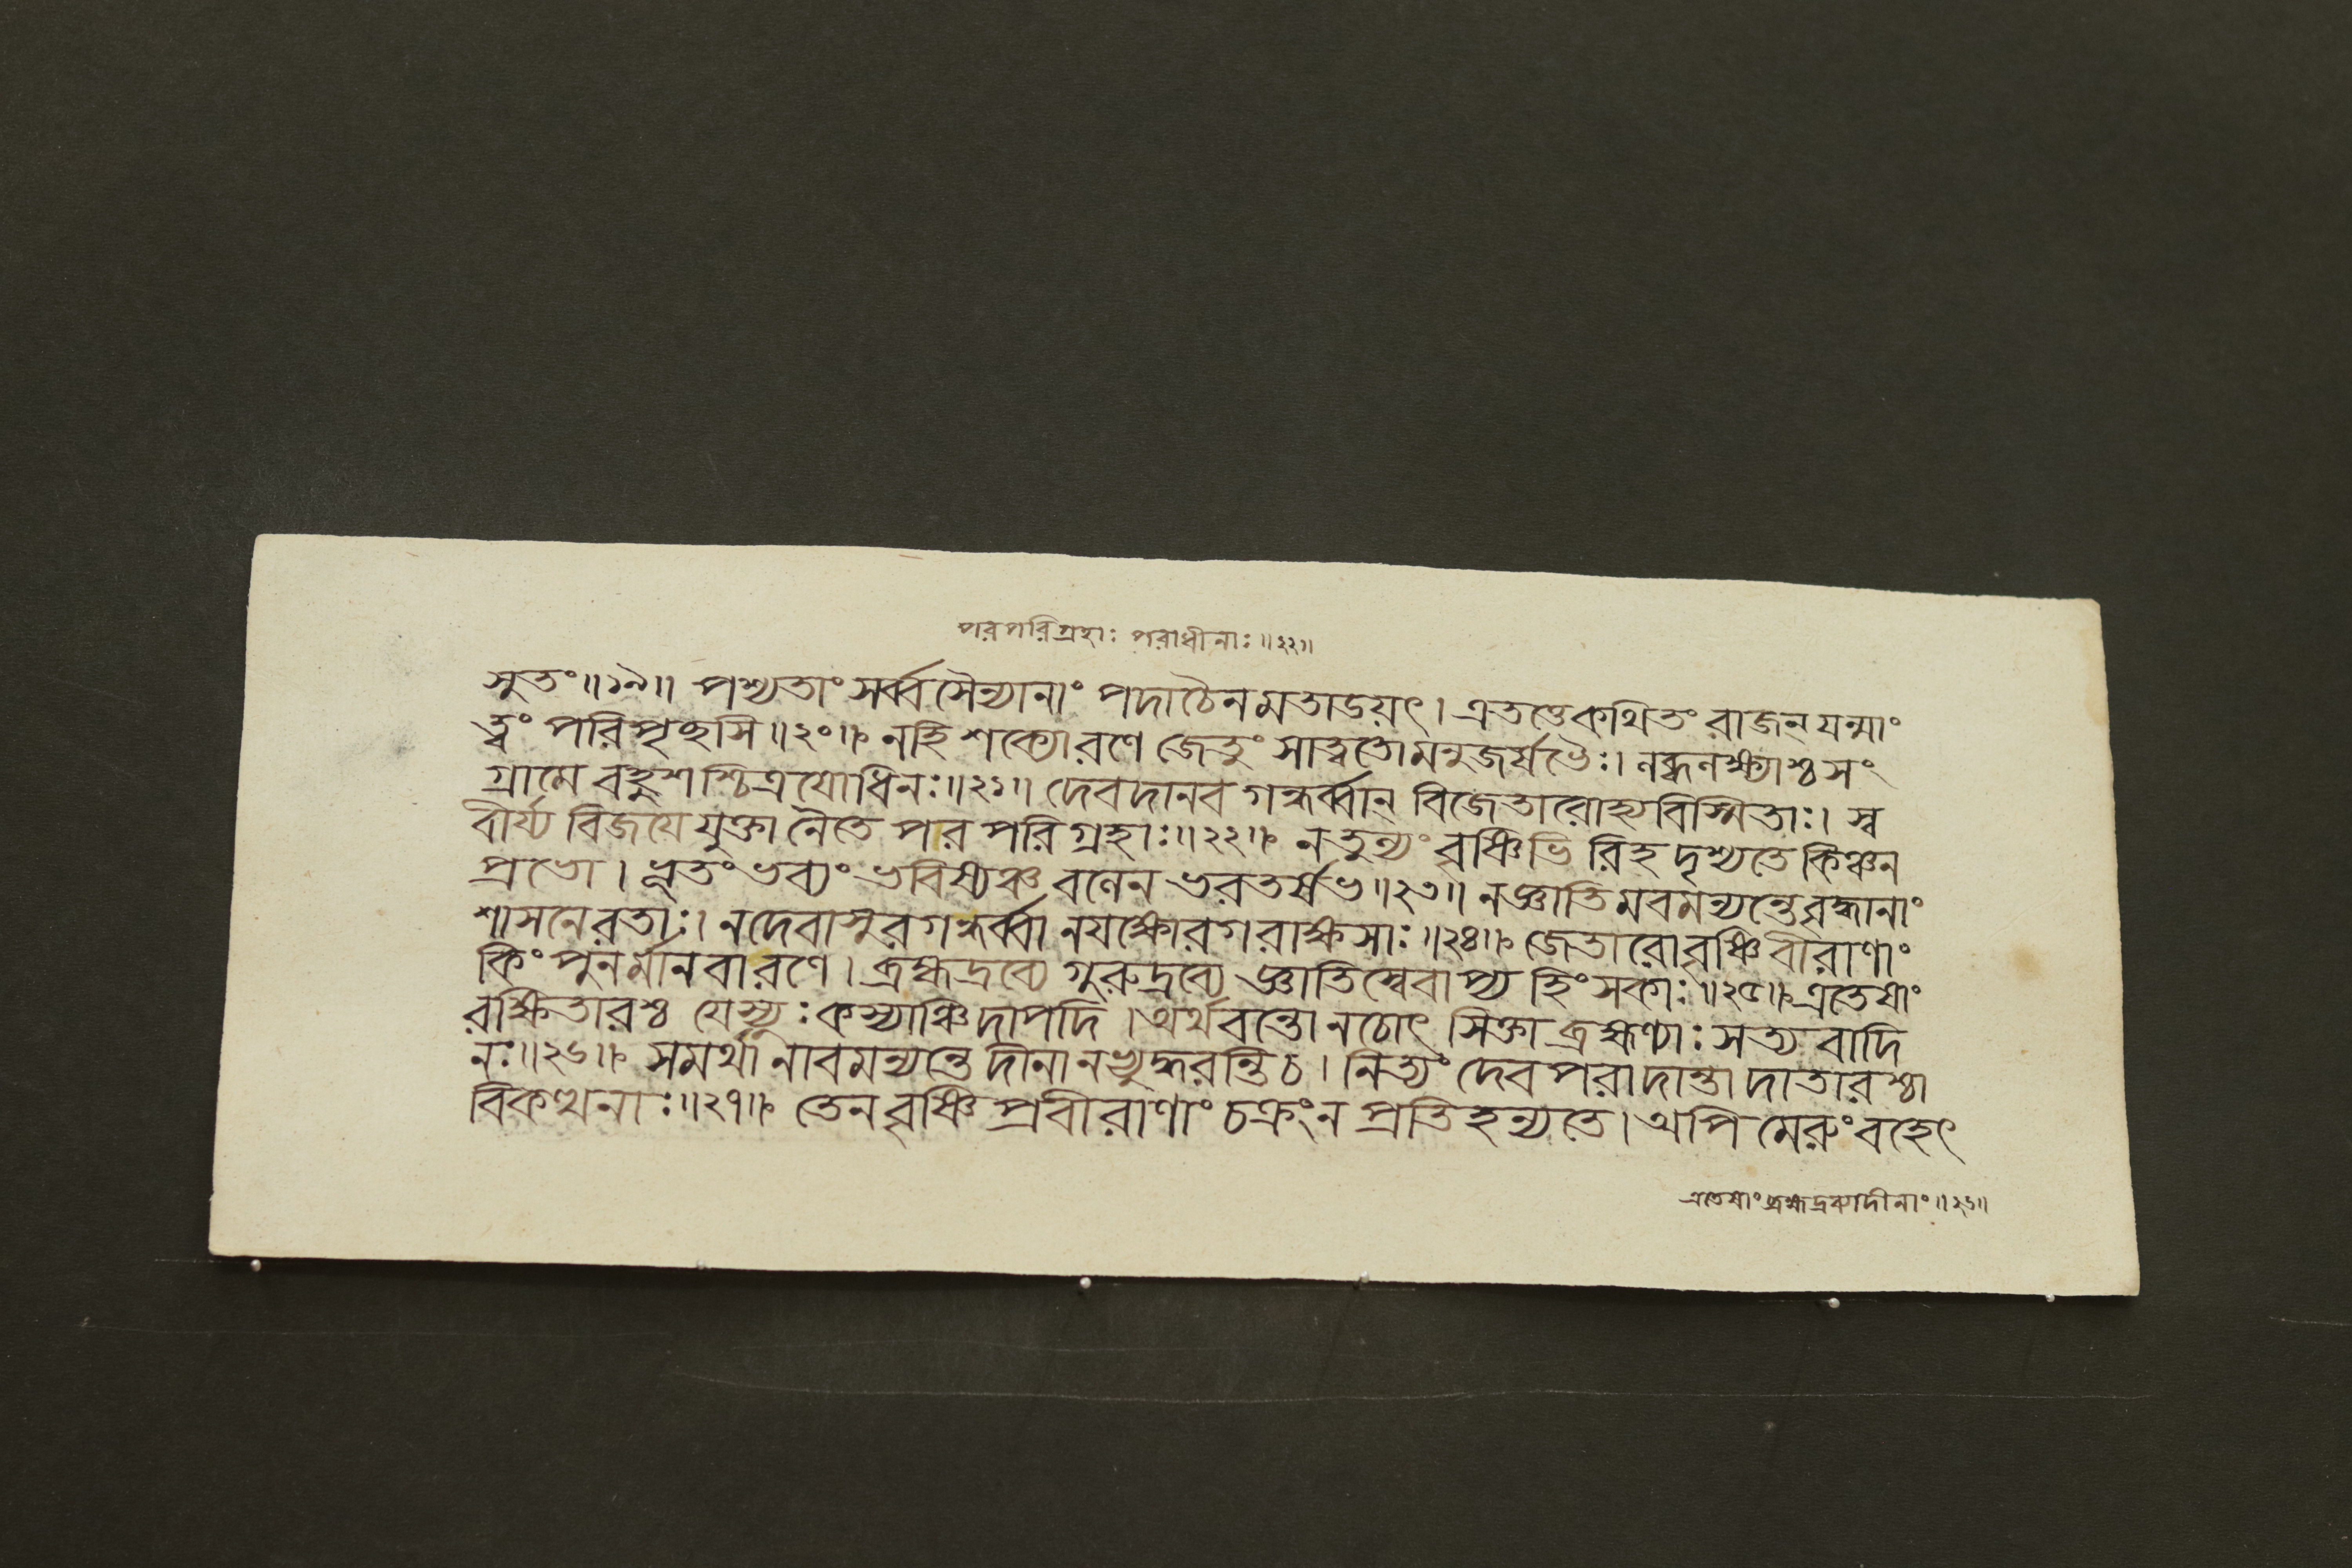 পরপরিগ্রহাঃ পরাধীনাঃ॥২২॥
সুতং॥১৯॥ পশ্যতাং সর্ব্বসৈন্যানাং পদাচৈনমতাডয়ৎ। এতত্তেকথিতং রাজন্ যন্মাং
ত্বং পরিপৃছসি॥২০॥ নহি শক্যোরণে জেতুং সাত্বতোমনুজর্ষভৈঃ। নব্ধনক্ষ্যাশ্চসং
গ্রামে বহুশশ্চিত্রযোধিনঃ॥২১॥ দেবদানব গন্ধর্ব্বান্ বিজেতারোহ্যবিস্মিতাঃ। স্ব
বীর্য্য বিজযে যুক্তা নৈতে পর পরিগ্রহাঃ॥২২॥ নতুন্যং বৃষ্ণিভি রিহ দৃশ্যতে কিঞ্চন
প্রভো। ভূতং ভব্যং ভবিষ্যঞ্চ বনেন ভরতর্ষভ॥২৩॥ নজ্ঞাতিমবমন্যন্তেবৃদ্ধানাং
শাসনেরতাঃ। নদেবাসুরগন্ধর্ব্বা নযক্ষোরগরাক্ষসাঃ॥২৪॥ জেতারোবৃষ্ণিবীরাণাং
কিং পুনর্মানবারণে। ব্রহ্মদ্রব্যে গুরুদ্রব্যে জ্ঞাতিস্বেবাপ্য হিংসকাঃ॥২৫॥ এতেষাং
রক্ষিতারশ্চ যেস্যুঃ কস্যাঞ্চিদাপদি। অর্থবন্তোনচোৎ সিক্তা ব্রহ্মণ্যাঃ সত্য বাদি
নঃ॥২৬॥ সমর্থা নাবমন্যন্তে দীনানভ্যুদ্ধরন্তিচ। নিত্যং দেবপরাদান্তা দাতারশ্চা
বিকত্থনাঃ॥২৭॥ তেন বৃষ্ণি প্রবীরাণাং চক্রং ন প্রতিহন্যতে। অপি মেরুং বহেৎ
এতেষাং ব্রহ্মদ্রব্যাদীনাং॥২৬॥